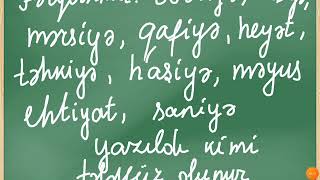 mərsiyə, qafiyə, heyət,
təhniyə, haşiyə, məyus
ehtiyat, saniyə
yazıldığı kimi
tələffüz olunur